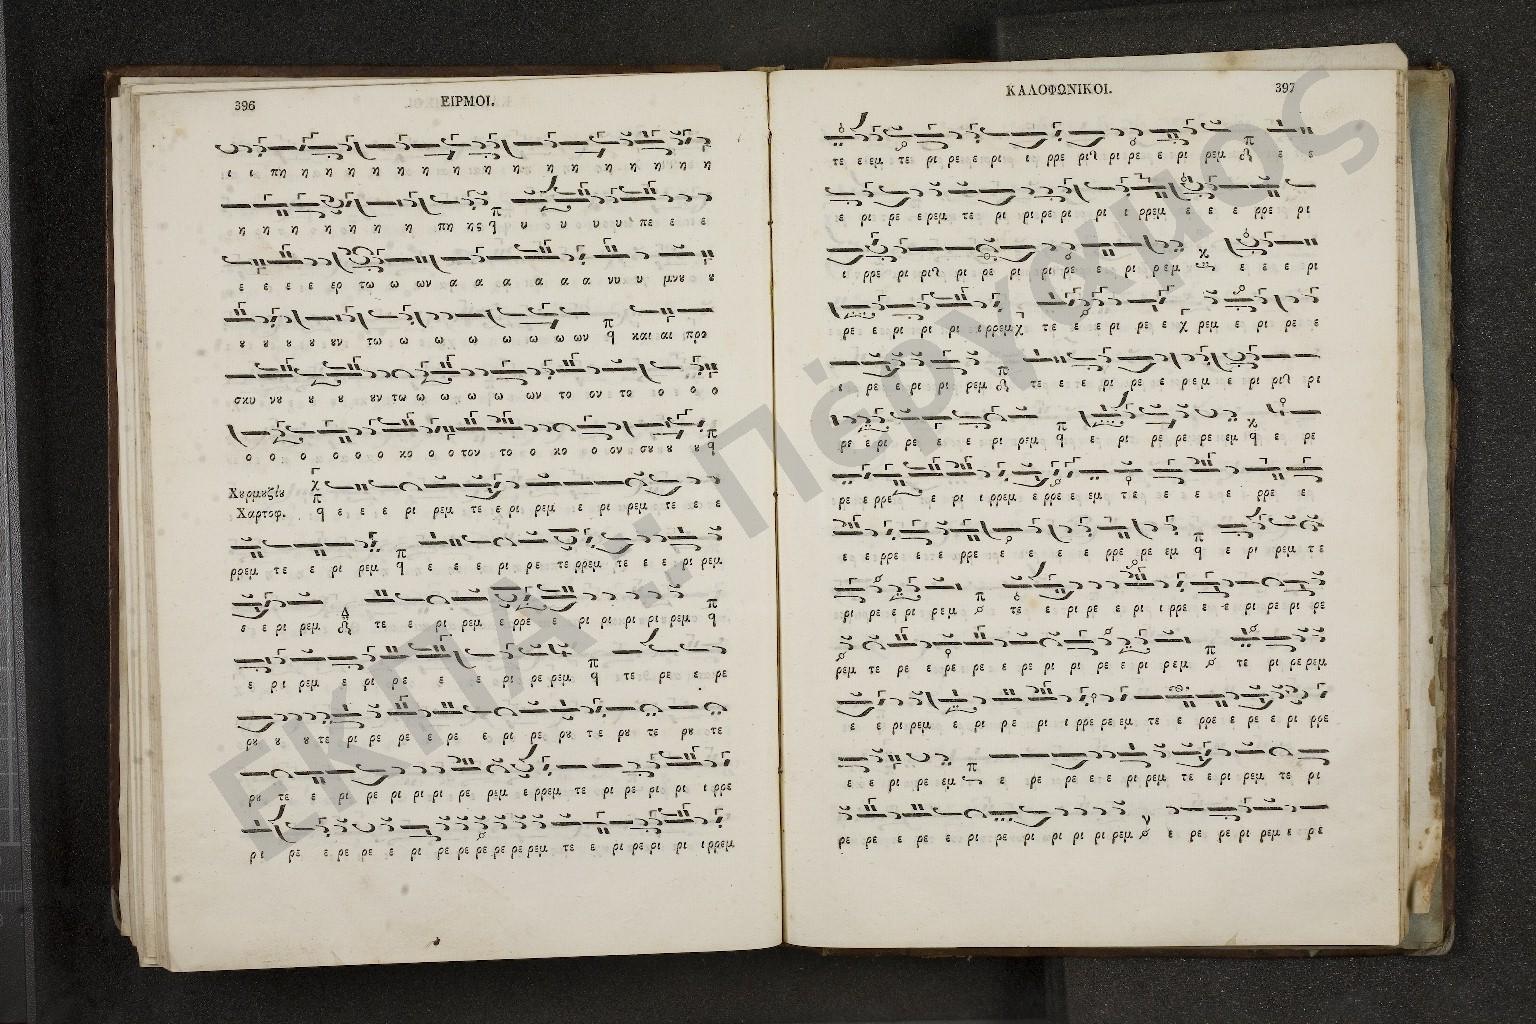 396
ΕΙΡΜΟΙ.
ι ι πη η η η η η η η η η η η η η η η
η η η η η η η πη ης ϥ υ υ υ υ υ πε ε ε
ε ε ε ε ερ τω ω ων α α α α α α νυ υ μνȣ ȣ
ȣ ȣ ȣ ȣ ȣν τω ω ω ω ω ω ω ων ϥ και αι προ
σκυ νȣ ȣ ȣ ȣ ȣν τω ω ω ω ω ω ων το ον το ο ο ο
ο ο ο ο ο ο κο ο ο τον το ο κο ο ον σȣ ȣ ȣ ϥ
Χȣρμȣζίȣ
Χαρτοφ. ϥ ε ε ε ρι ρεμ τε ε ρι ρεμ ε ρι ρεμ τε ε ε
ρρεμ τε ε ρι ρεμ ϥ ε ε ε ρι ρε τε ρρεμ τε ε ε ρι ρεμ
ε ε ρι ρεμ τε ε ρι ρεμ ε ρρε ε ρι ρι ρι ρι ρεμ ϥ
ε ρι ρεμ ε ρι ρε ε ε ρι ρε ρεμ ϥ τε ρε ε ρε
ρȣ ȣ ȣ τε ρι ρε ρε ε ρε ε ρι ρε ρȣ τε ρȣ τε ρȣ τε
ρȣ τε ε ρι ρε ρι ρι ρι ρε ρεμ ε ρρεμ τε ρι ρε ρι ρι ι ρρε
ρι ρε ε ρε ρε ε ρι ρε ρε ρε ρε ρε ρεμ τε ε ρι ρε ρι ρι ι ρρεμ
ΚΑΛΟΦΩΝΙΚΟΙ.
397
τε ε εμ τε ρι ρε ε ρι ι ρρε ρι ρι ρε ε ρι ρεμ ε ε
ε ρι ρε ε ρεμ τε ρι ρι ρε ρι ρι ι ρρεμ ε ε ε ρρε ρι
ι ρρε ρι ρι ρι ρε ρι ρι ρε ε ρι ρεμ ε ε ε ρι
ρε ε ρι ρι ρι ι ρρεμ τε ε ε ρι ρε ε ρεμ ε ρι ρε ε
ρε ε ρι ρι ρεμ τε ε ε ρι ρε ε ρεμ ε ρι ρι ρι
ρε ε ρι ρε ε ε ρι ρεμ ϥ ε ρι ρε ρε ρε εμ ϥ ε ρε
ρε ε ρρε ε ρι ι ρρεμ ε ρρε ε εμ τε ε ε ε ρρε ε
ε ε ρρε ε ε ρρε ε ε ε ε ε ρρε ρε εμ ϥ ε ρι ρεμ τε
ρι ρε ε ρι ρεμ τε ε ρι ρε ε ρι ι ρρε ε ε ρι ρε ρι ρε
ρεμ τε ρε ε ρε ρε ε ρε ρι ρι ρε ε ρι ρεμ τε ρι ρε ρεμ
ε ε ρι ρεμ ε ρι ρε ρι ι ρρε ρε εμ τε ε ρρε ε ρε ε ρι ρρε
ε ε ρι ρε εμ ε ρε ρε ε ε ρι ρεμ τε ε ρι ρεμ τε ρι
ρε ρε ε ρε ε ρι ρε ρι ρι ρι ρι ρεμ ε ρε ρε ρι ρεμ ε ρε